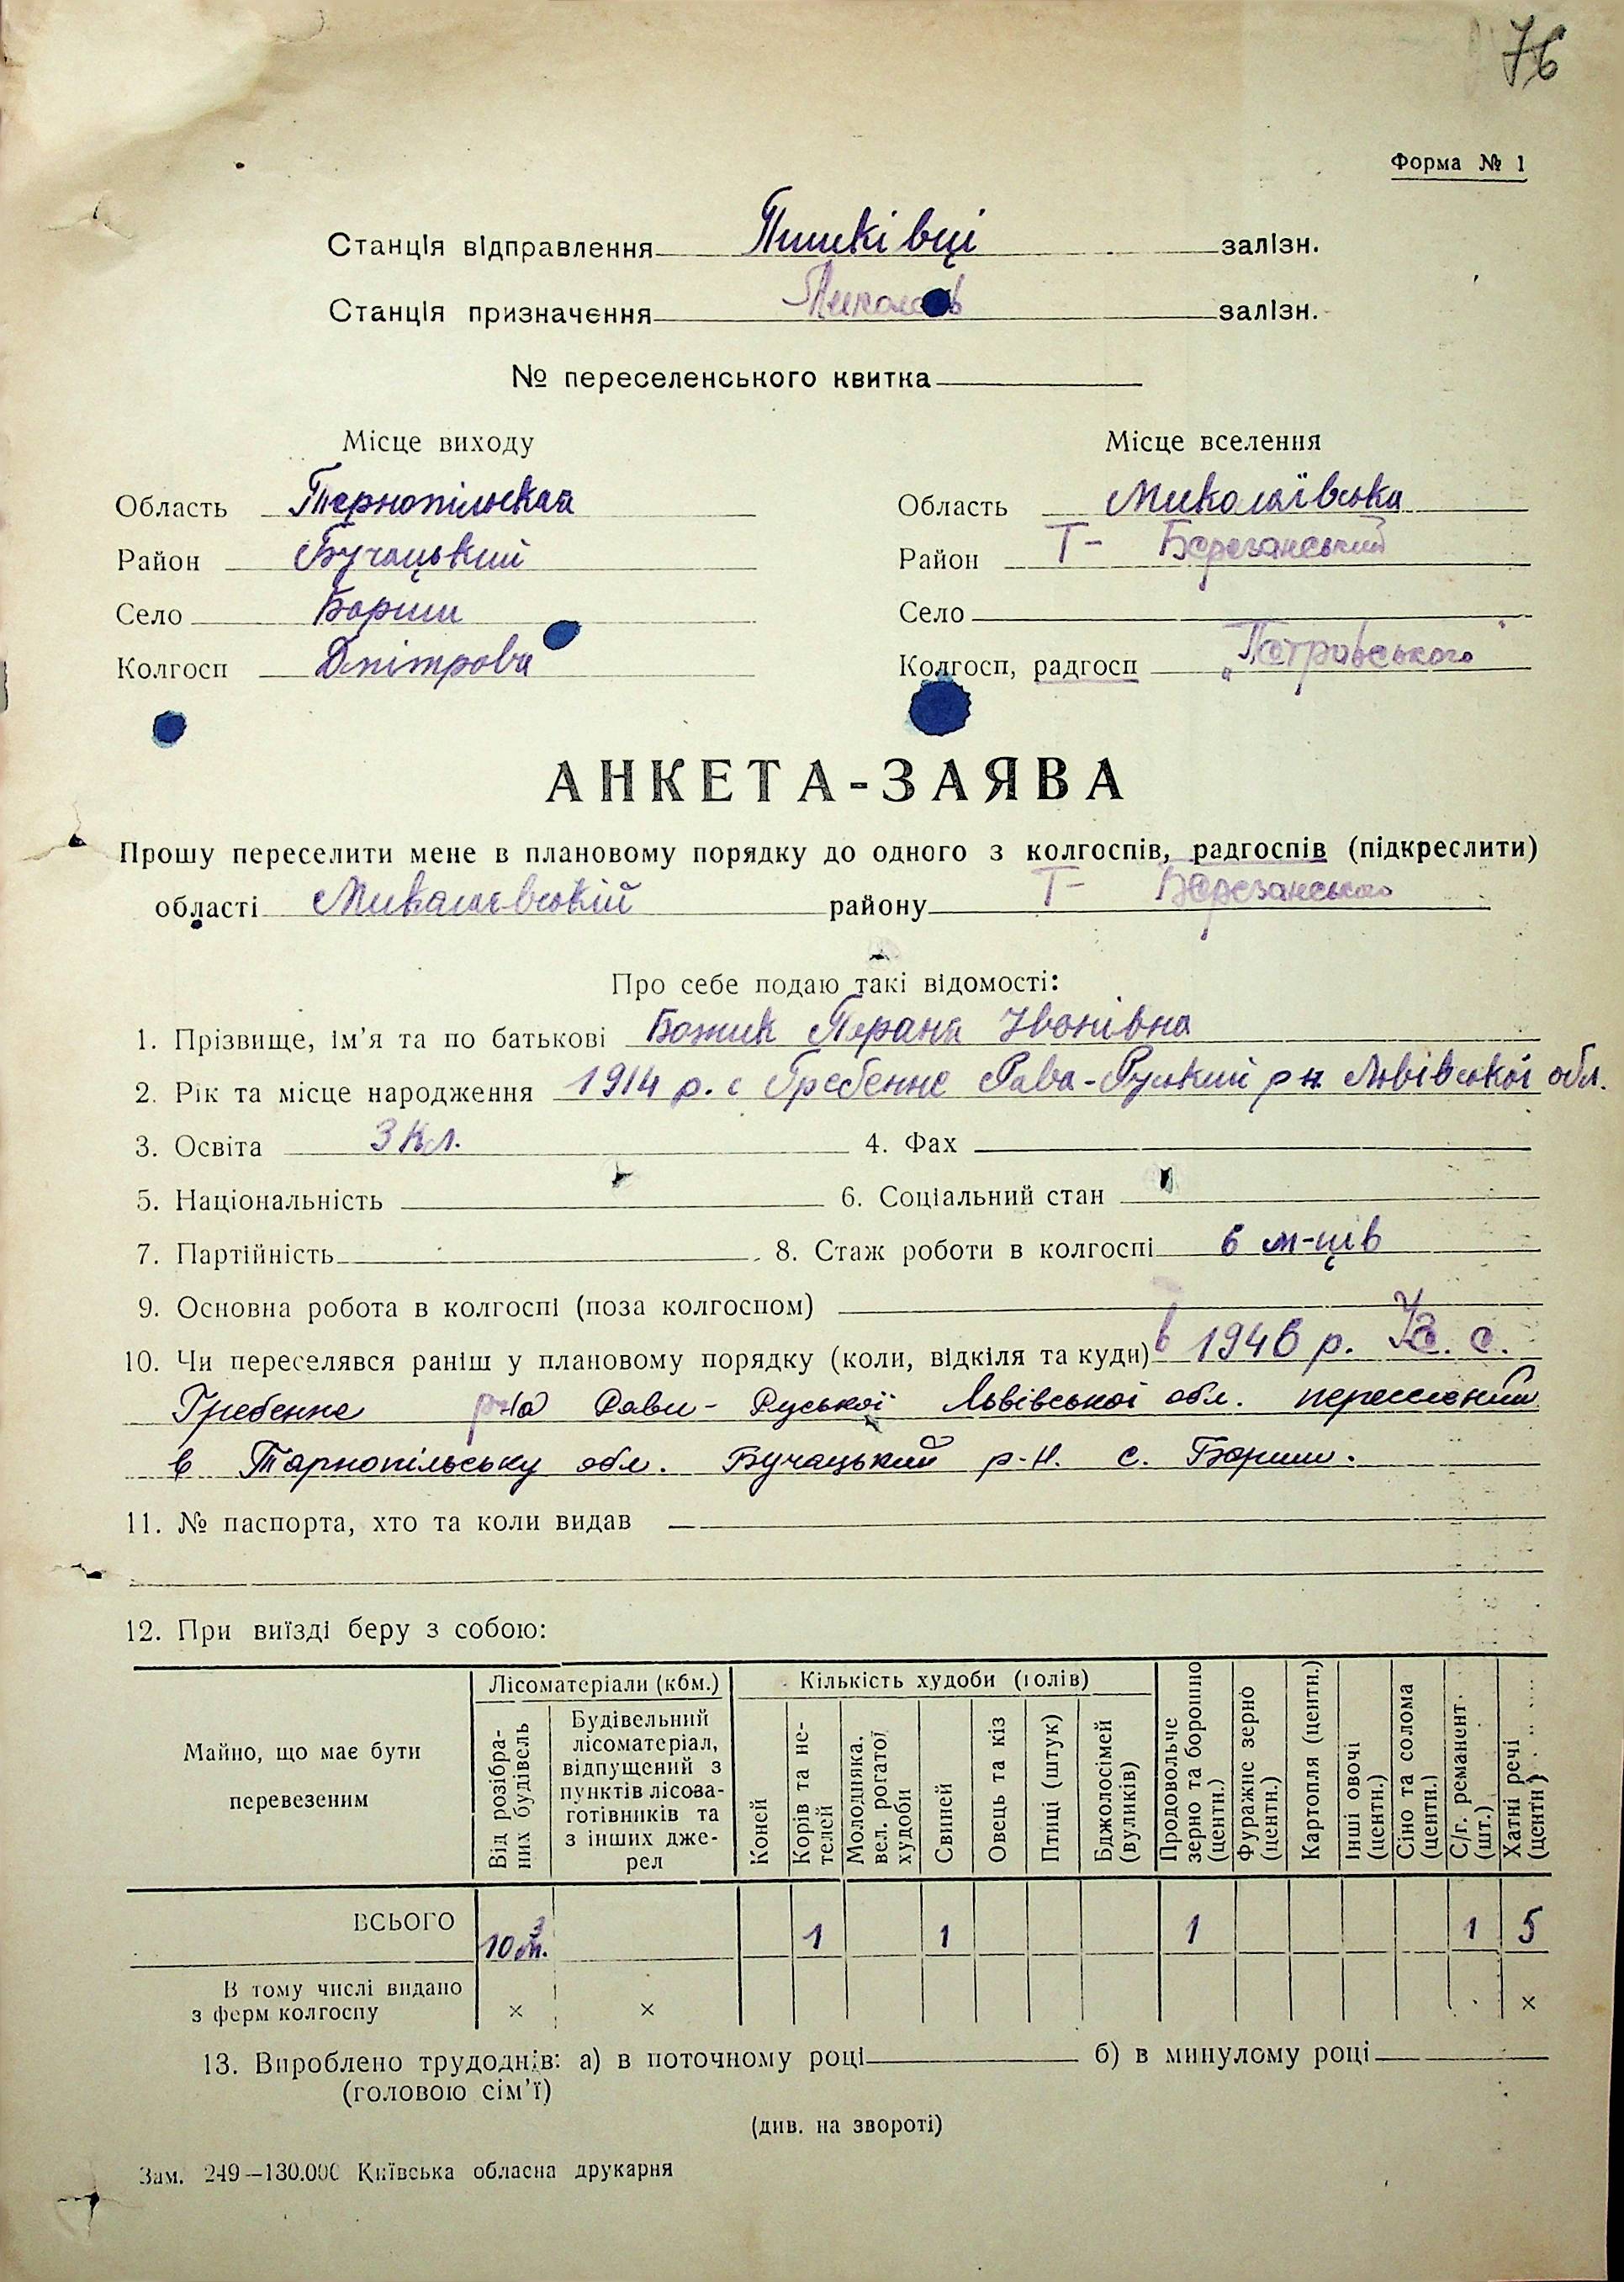 76
Форма № 1
Станція відправлення Пишківці залізн.
Станція призначення залізн.
№ переселенського квитка
Місце виходу Місце вселення
Область Тернопільская Область Миколаївська
Район Бучацький Район Т- Березанський
Село Бариш Село
Колгосп Дмітрова Колгосп, радгосп „Петровського"
АНКЕТА-ЗАЯВА
Прошу переселити мене в плановому порядку до одного з колгоспів, радгоспів (підкреслити)
області Миколаєвській району Т- Березанського
Про себе подаю такі відомості:
1. Прізвище, ім'я та по батькові Божик Параня Іванівна
2. Рік та місце народження 1914 р. с Гребенне Рава-Руський р н. Львівської обл.
3. Освіта 3 кл. 4. Фах
5. Національність 6. Соціальний стан
7. Партійність 8. Стаж роботи в колгоспі 6 м-ців
9. Основна робота в колгоспі (поза колгоспом)
10. Чи переселявся раніш у плановому порядку (коли, відкіля та куди) в 1946 р. Із. с.
Гребенне р-на Рави-Руської Львівської обл. переселений
в Тарнопільську обл. Бучацький р-н. с. Бариш.
11. № паспорта, хто та коли видав
12. При виїзді беру з собою:
Майно, що має бути перевезеним
Лісоматеріали (кбм.)
Від розібраних будівель
Будівельний лісоматеріал, відпущений з пунктів лісоза-готівників та з інших дже-рел
Кількість худоби (голів)
Коней
Корів та не-телей
Молодняка. вел. рогатої худоби
Свиней
Овець та кіз
Птиці (штук)
Бджолосімей (вуликів)
Продовольче зерно та борошно (центн.)
Фуражне зерно (центн.)
Картопля (центн.)
Інші овочі (центн.)
Сіно та солома (центн.)
С/г. реманент (шт.)
Хатні речі (центн)
ВСЬОГО 10 м.3 1 1 1 1 5
В тому числі видано
з ферм колгоспу × × ×
13. Вироблено трудоднів: а) в поточному році б) в минулому році
(головою сім'ї)
(див. на звороті)
Зам. 249—130.000 Київська обласна друкарня